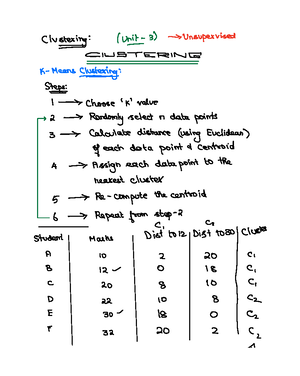 Clustering: (Unit - 3) → Unsupervised
CLUSTERING
K-Means Clustering:
Steps:
1 → Choose 'K' value
2 → Randomly select n data points
3 → Calculate distance (using Euclidean)
of each data point & centroid
4 → Assign each data point to the
nearest cluster
5 → Re-compute the centroid
6 → Repeat from step-2
C₁ C₂
Student Marks Dist to 12 Dist to 30 Cluster
A 10 2 20 C₁
B 12 ✓ 0 18 C₁
C 20 8 10 C₁
D 22 10 8 C₂
E 30 ✓ 18 0 C₂
F 32 20 2 C₂